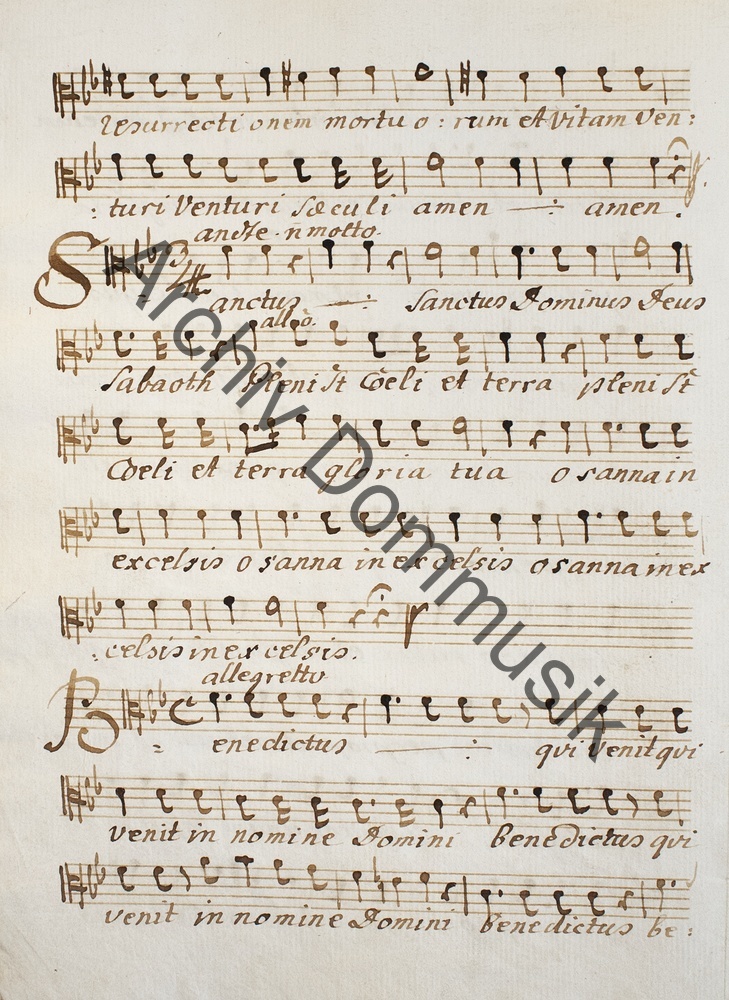 resurrecti onem mortu o : rum et Vitam Ven :
: turi Venturi Sæculi amen — : amen .
andte . ñ molto .
Sanctus — : Sanctus Dominus Deus
allo.
Sabaoth Pleni st Cœli et terra pleni st
Cœli et terra gloria tua o sanna in
excelsis o sanna in excelsis o sanna in ex
: celsis in ex celsis .
allegretto
Benedictus — : qui Venit qui
venit in nomine Domini benedictus qui
venit in nomine Domini benedictus be :
Archiv Dommusik